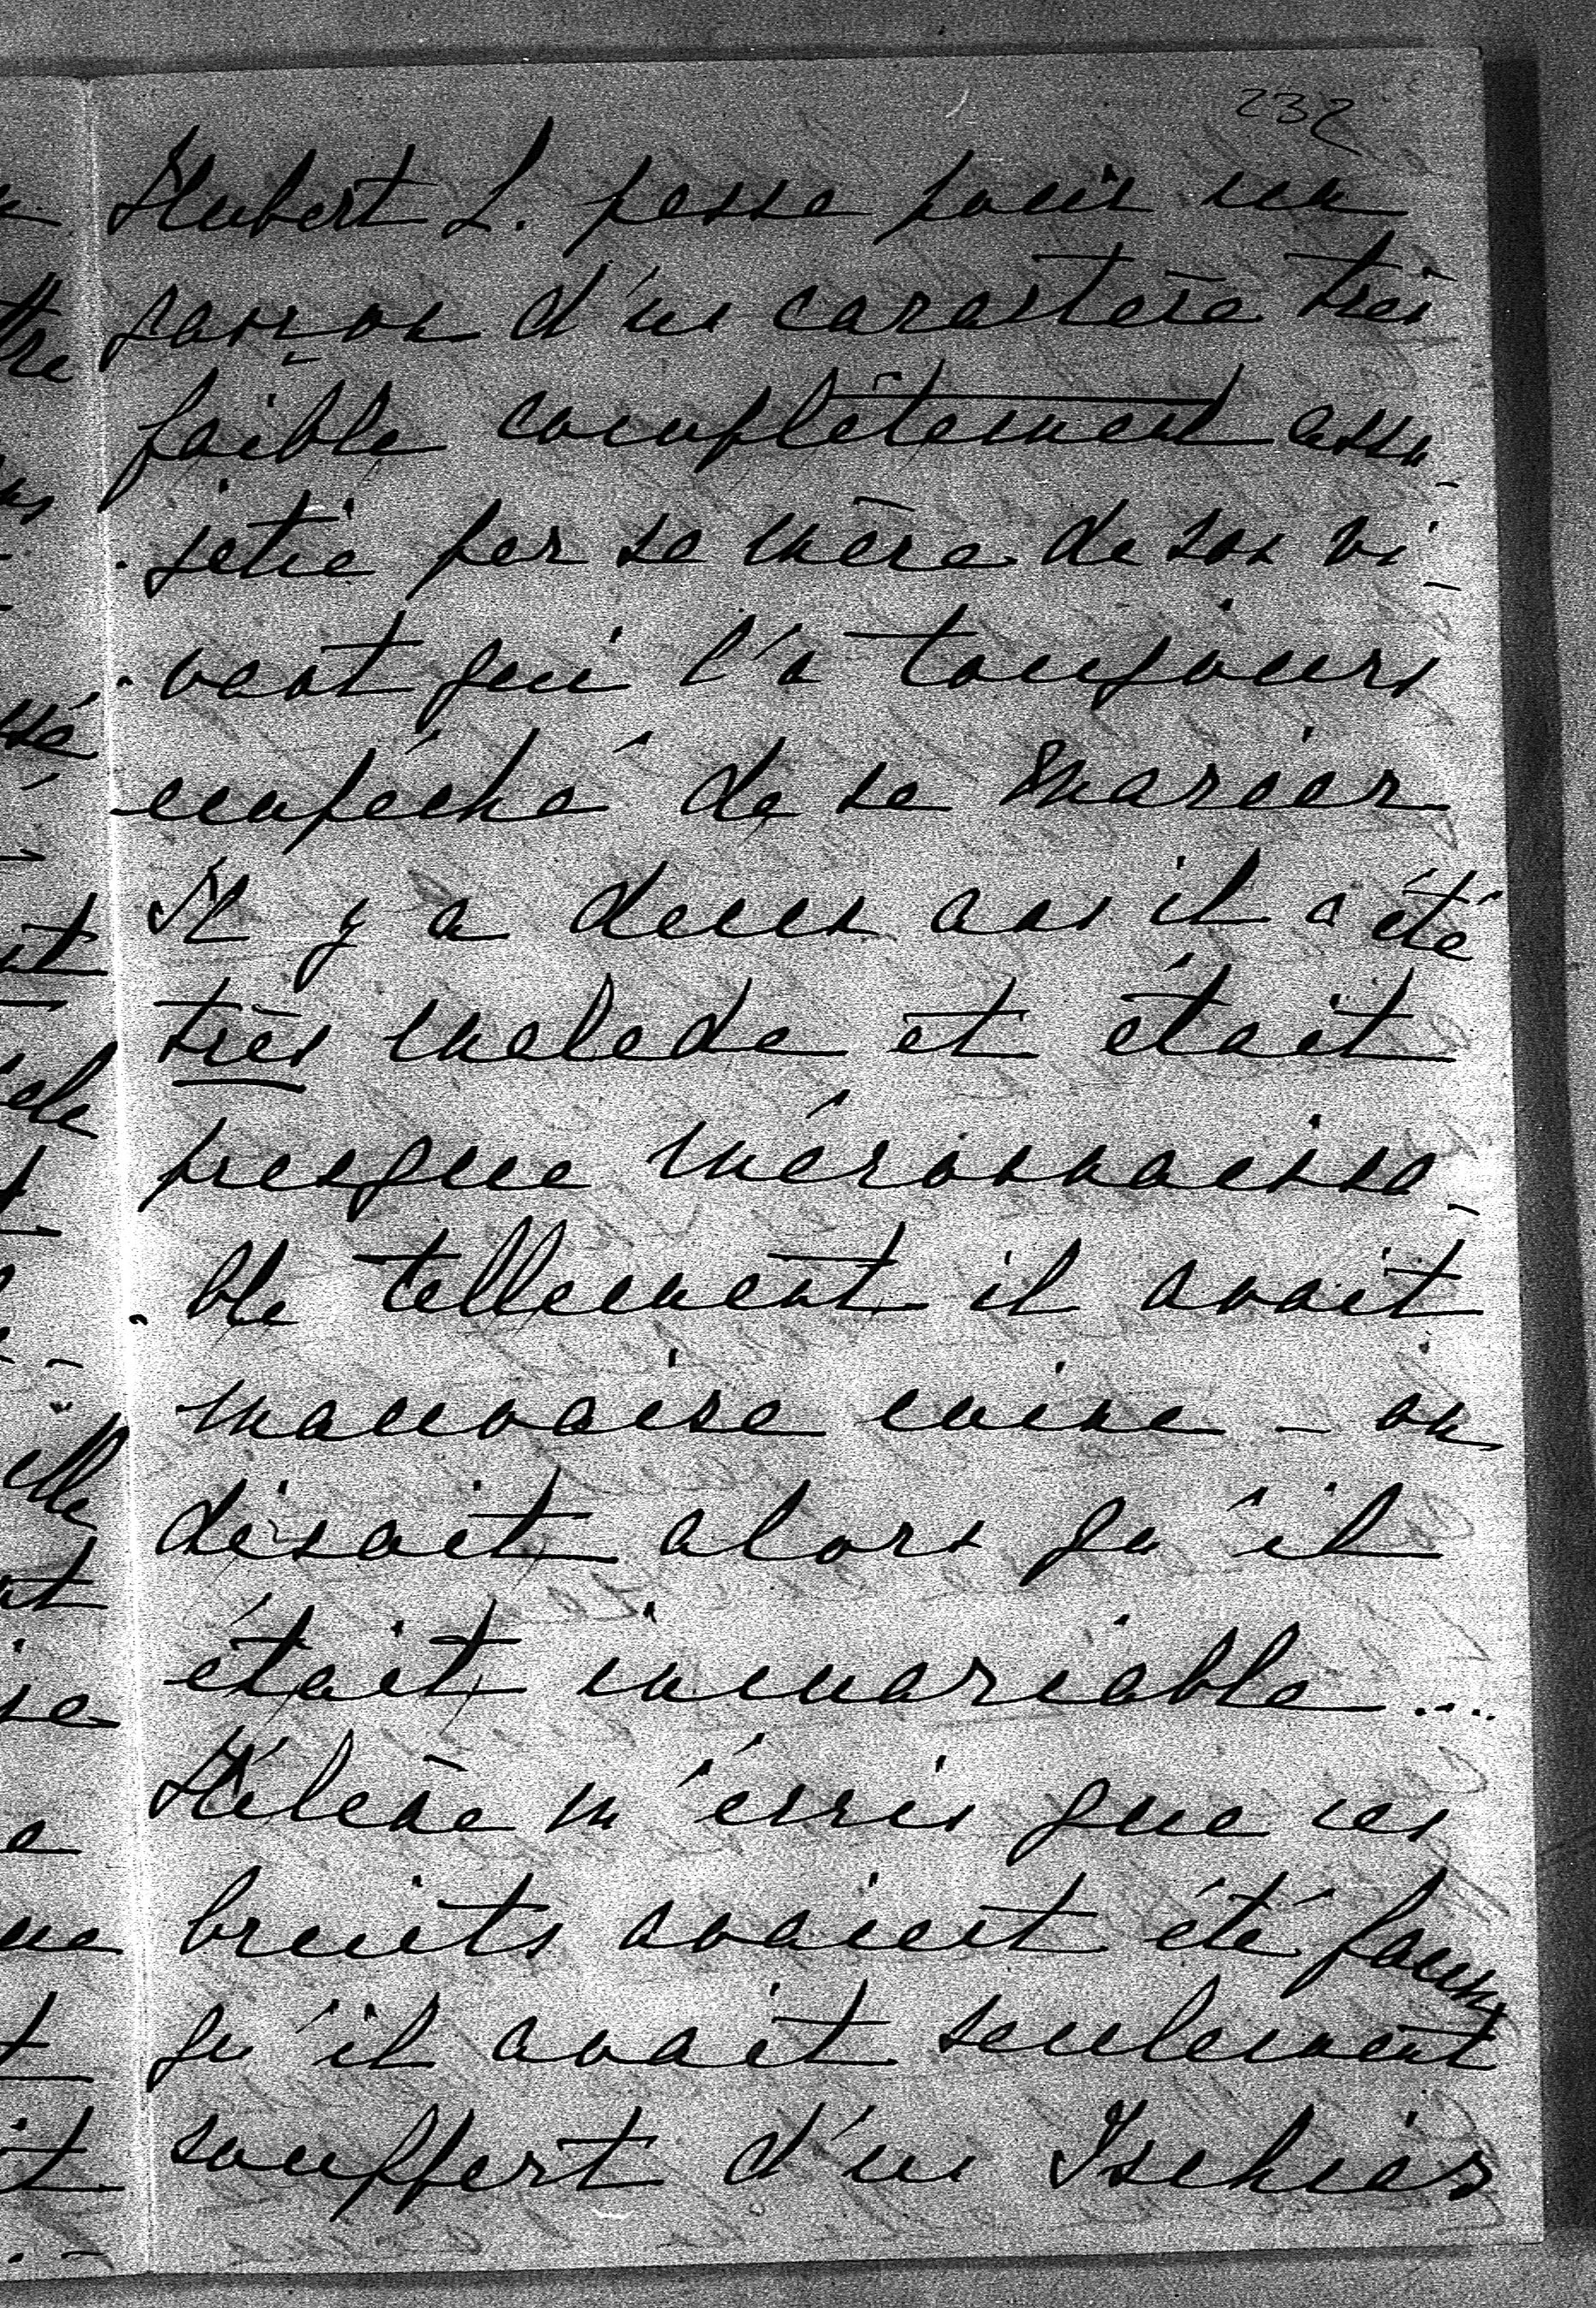 232
Hubert L. passe pour un
garçon d'un caractère très
faible complètement assu-
jetie par sa mère de son vi-
vant qui l'a toujours
empêché de se marier
Il y a deux ans il a été
très malade et était
presque méconnaissa-
ble tellement il avait
mauvaise mine - on
disait alors qu'il
était inmariable...
Hélène m'écris que ces
bruits avaient été faux,
qu'il avait seulement
souffert d'un Ischias